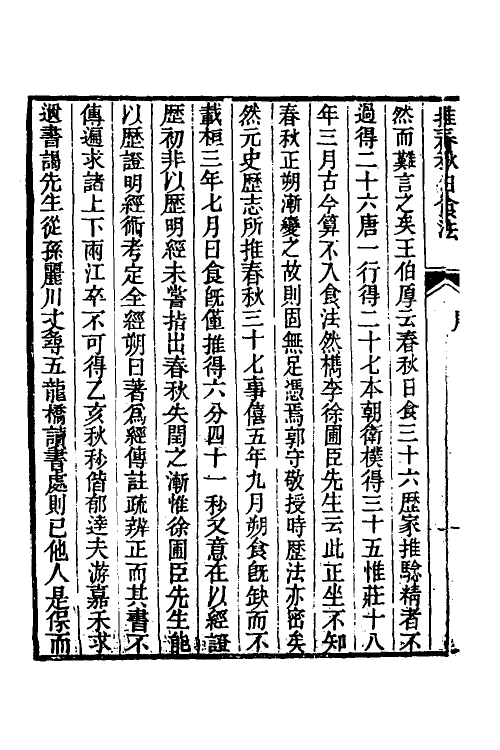 推春秋日食法　序
然而難言之矣王伯厚云春秋日食三十六歷家推驗精者不
過得二十六唐一行得二十七本朝衛樸得三十五惟莊十八
年三月古今算不入食法然檇李徐圃臣先生云此正坐不知
春秋正朔漸變之故則固無足憑焉郭守敬授時歷法亦密矣
然元史歷志所推春秋三十七事僖五年九月朔食旣缺而不
載桓三年七月日食旣僅推得六分四十一秒又意在以經證
歷初非以歷明經未嘗指出春秋失閏之漸惟徐圃臣先生能
以歷證明經術考定全經朔日著爲經傳註疏辨正而其書不
傳遍求諸上下兩江卒不可得乙亥秋秒偕郁逵夫游嘉禾求
遺書謁先生從孫麗川丈尋五龍橋讀書處則已他人是保而